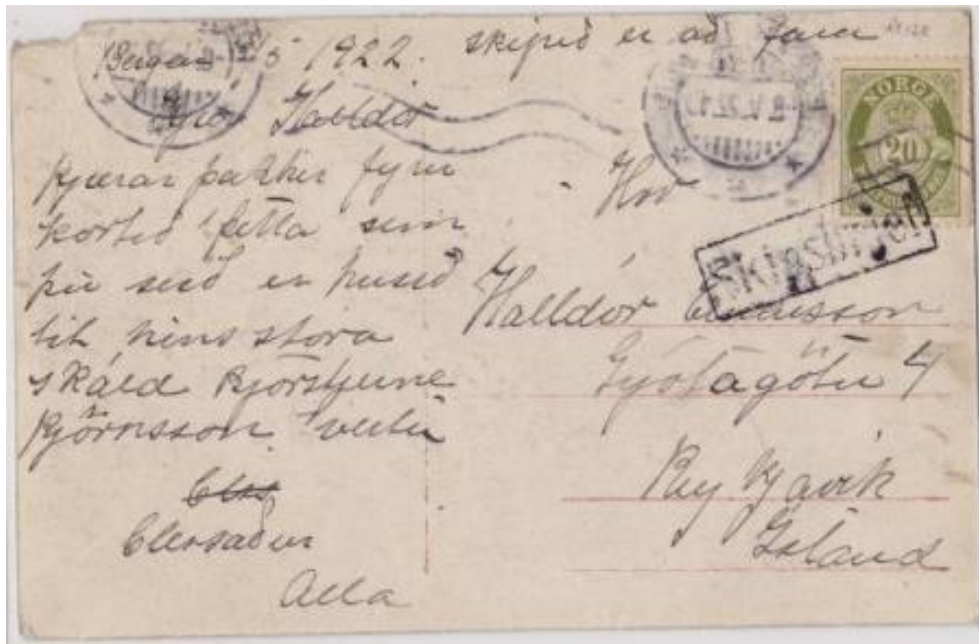 Bergen 5 1922. skipið er að fara
Halldór
Kjærar þakkir fyrir
kortið þetta sem
þú serð er husið
til hins stora
skáld Bjornstjerne
Björnsson vertu
blessaður
Alla
NORGE
20
Skipsbrjef
Hr
Halldór
4
Reykjavik
Island